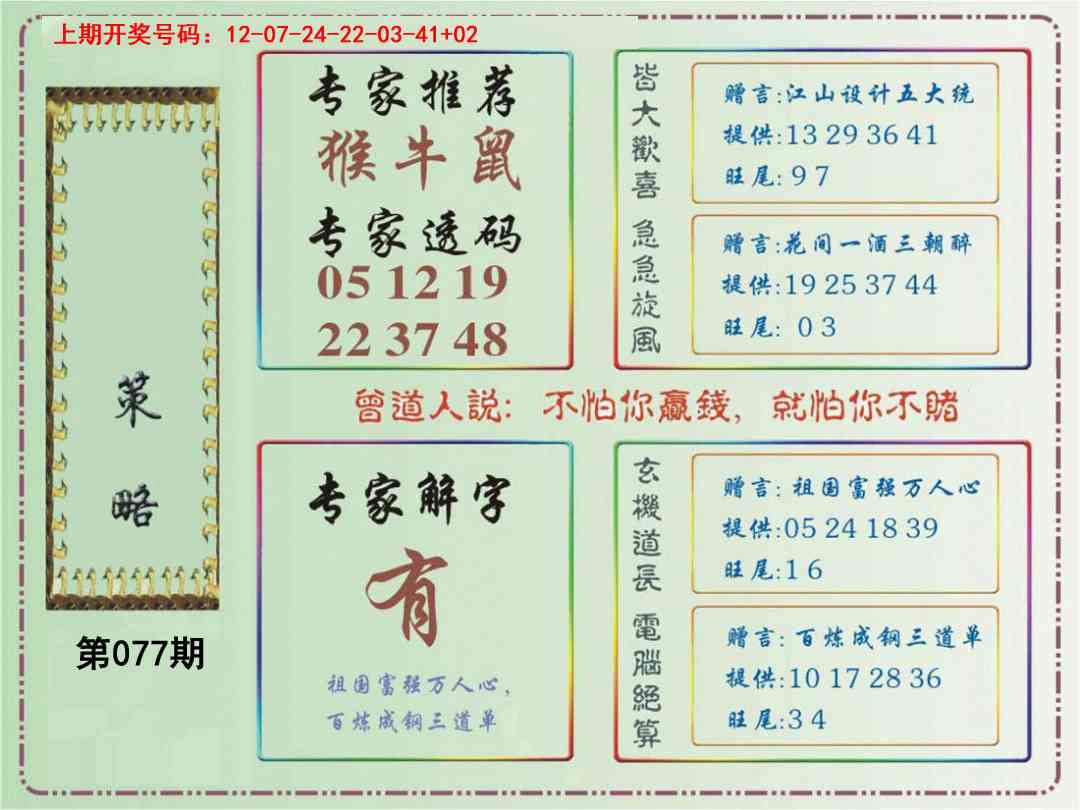 上期开奖号码：12-07-24-22-03-41+02
策
略
第077期
专家推荐
猴牛鼠
专家透码
05 12 19
22 37 48
皆大歡喜
赠言:江山设计五大统
提供:13 29 36 41
旺尾: 9 7
急急旋風
赠言:花间一酒三朝醉
提供:19 25 37 44
旺尾: 0 3
曾道人説：不怕你赢錢，就怕你不賭
专家解字
有
祖国富强万人心，
百炼成钢三道单
玄機道長
赠言: 祖国富强万人心
提供:05 24 18 39
旺尾:1 6
電腦絕算
赠言: 百炼成钢三道单
提供:10 17 28 36
旺尾:3 4